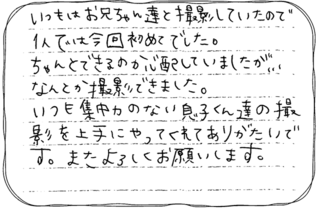 いつもはお兄ちゃん達と撮影していたので
1人では今回初めてでした。
ちゃんとできるのか心配していましたが...
なんとか撮影できました。
いつも集中力のない息子くん達の撮
影を上手にやってくれてありがたいで
す。またよろしくお願いします。